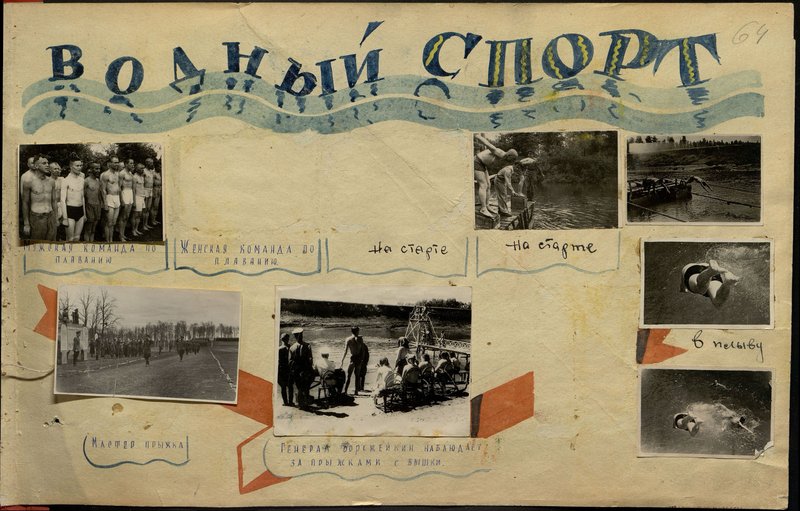 64
ВОДНЫЙ СПОРТ
МУЖСКАЯ КОМАНДА ПО
ПЛАВАНИЮ
ЖЕНСКАЯ КОМАНДА ПО
ПЛАВАНИЮ.
На старте
На старте
В
МАСТЕР ПРЫЖКА
ГЕНЕРАЛ ВОРОЖЕЙКИН НАБЛЮДАЕТ
ЗА ПРЫЖКАМИ С ВЫШКИ.